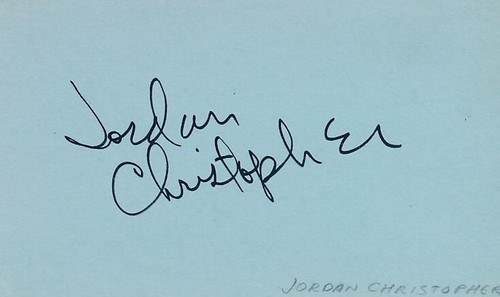 Jordan
Christopher
JORDAN CHRISTOPHER